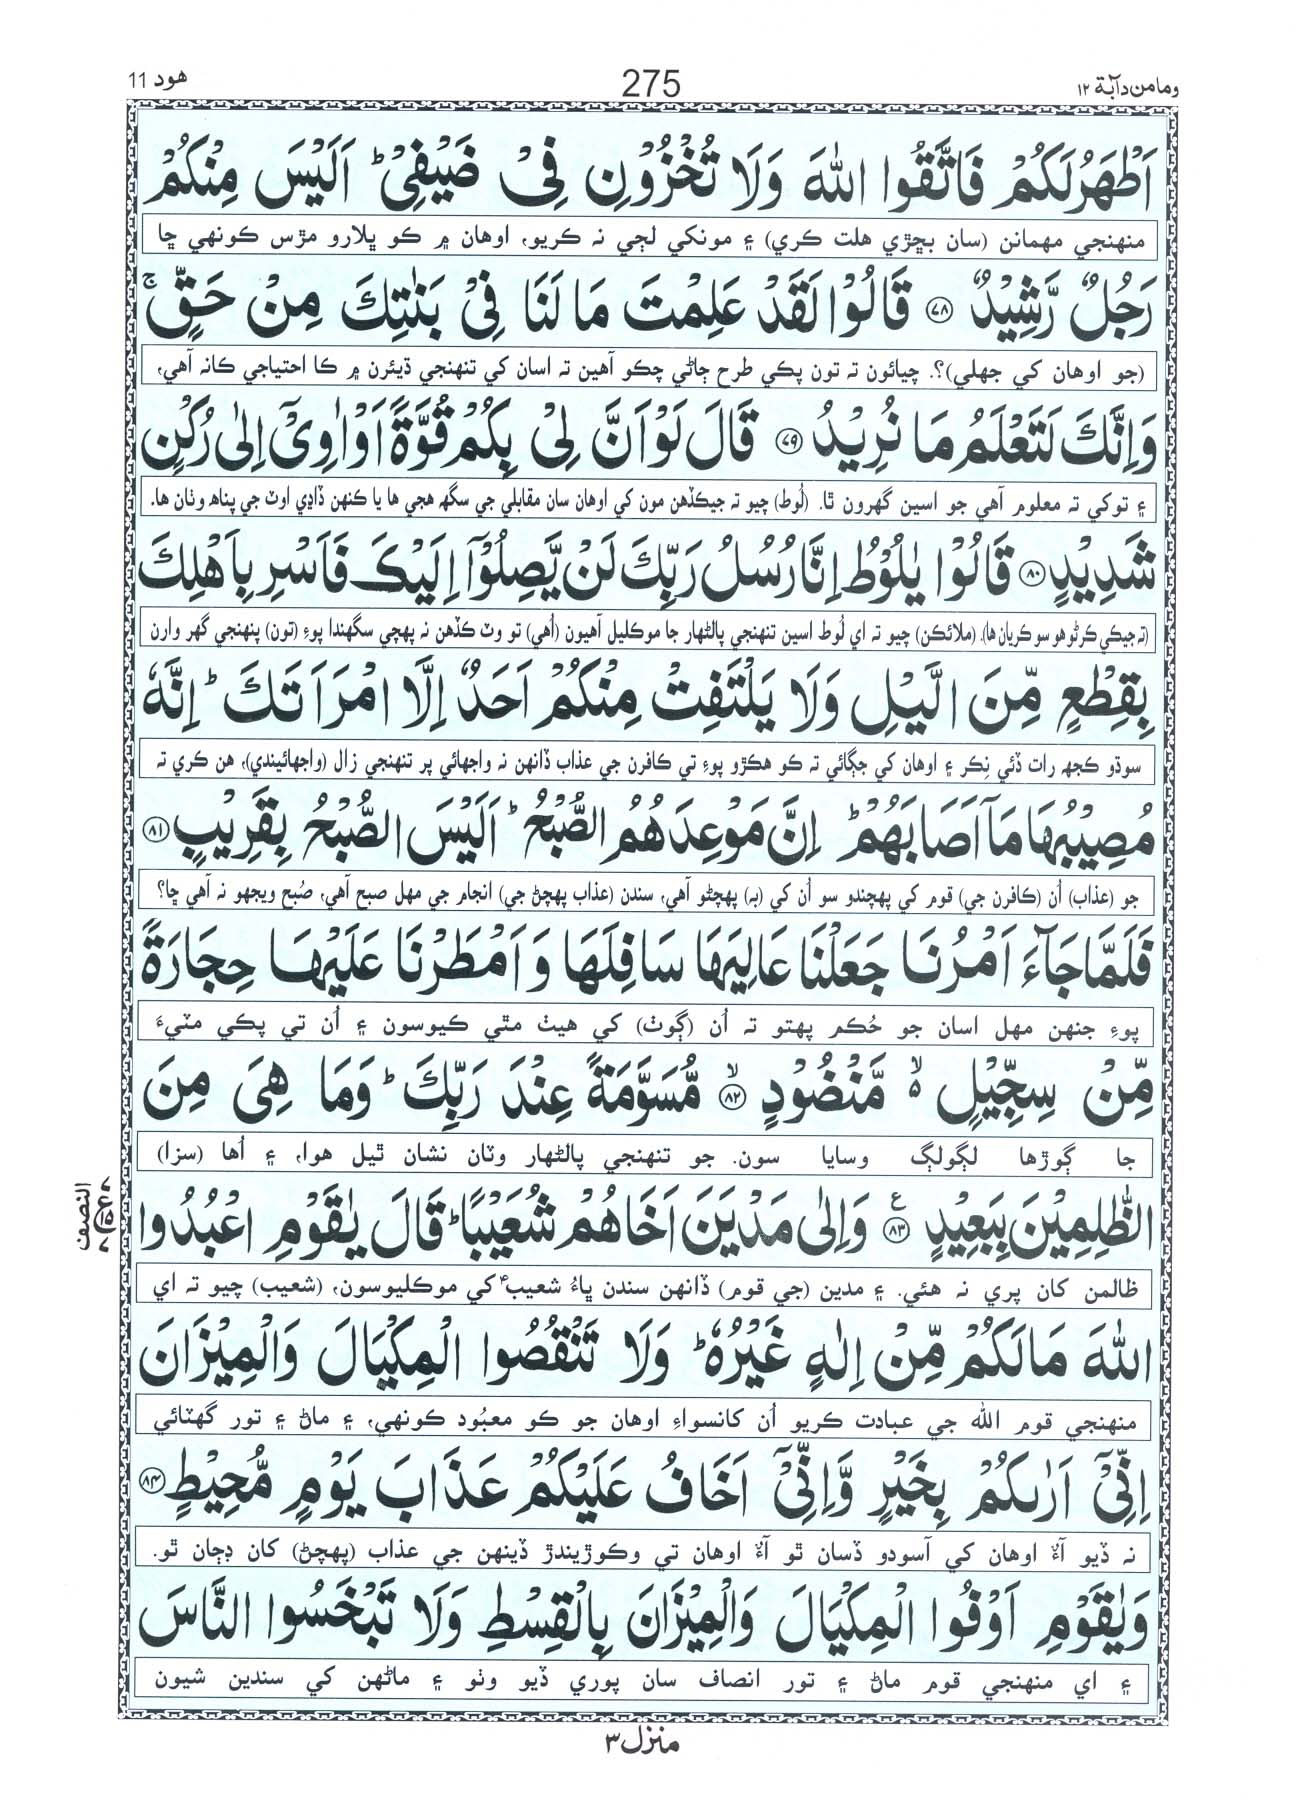 ومامن دآبة ١٢
275
هود 11
اَطْهَرُ لَكُمْ فَاتَّقُوا اللّٰهَ وَلَا تُخْزُوْنِ فِیْ ضَیْفِیْ ؕ اَلَیْسَ مِنْكُمْ
منهنجي مهمانن (سان بڇڙي هلت ڪري) ۽ مونکي لڄي نہ ڪريو، اوهان ۾ ڪو ڀلارو مڙس ڪونهي ڇا
رَجُلٌ رَّشِیْدٌ ﴿٧٨﴾ قَالُوْا لَقَدْ عَلِمْتَ مَا لَنَا فِیْ بَنٰتِكَ مِنْ حَقٍّ ۚ
(جو اوهان کي جهلي)؟. چيائون تہ تون پڪي طرح ڄاڻي چڪو آهين تہ اسان کي تنهنجي ڌيئرن ۾ ڪا احتياجي ڪانہ آهي،
وَاِنَّكَ لَتَعْلَمُ مَا نُرِیْدُ ﴿٧٩﴾ قَالَ لَوْ اَنَّ لِیْ بِكُمْ قُوَّةً اَوْ اٰوِیْۤ اِلٰی رُكْنٍ
۽ توکي تہ معلوم آهي جو اسين گهرون ٿا. (لُوط) چيو تہ جيڪڏهن مون کي اوهان سان مقابلي جي سگهہ هجي ها يا ڪنهن ڏاڍي اوٽ جي پناهہ وٺان ها.
شَدِیْدٍ ﴿٨٠﴾ قَالُوْا یٰلُوْطُ اِنَّا رُسُلُ رَبِّكَ لَنْ یَّصِلُوْۤا اِلَیْكَ فَاَسْرِ بِاَهْلِكَ
(تہ جيڪي ڪرڻو هو سو ڪريان ها). (ملائڪن) چيو تہ اي لُوط اسين تنهنجي پالڻهار جا موڪليل آهيون (اُهي) تو وٽ ڪڏهن نہ پهچي سگهندا پوءِ (تون) پنهنجي گهر وارن
بِقِطْعٍ مِّنَ الَّیْلِ وَلَا یَلْتَفِتْ مِنْكُمْ اَحَدٌ اِلَّا امْرَاَتَكَ ؕ اِنَّهٗ
سوڌو ڪجهہ رات ڏئي نِڪر ۽ اوهان کي جڳائي تہ ڪو هڪڙو پوءِ تي ڪافرن جي عذاب ڏانهن نہ واجهائي پر تنهنجي زال (واجهائيندي)، هن ڪري تہ
مُصِیْبُهَا مَاۤ اَصَابَهُمْ ؕ اِنَّ مَوْعِدَهُمُ الصُّبْحُ ؕ اَلَیْسَ الصُّبْحُ بِقَرِیْبٍ ﴿٨١﴾
جو (عذاب) اُن (ڪافرن جي) قوم کي پهچندو سو اُن کي (بہ) پهچڻو آهي، سندن (عذاب پهچڻ جي) انجام جي مهل صبح آهي، صُبح ويجهو نہ آهي ڇا؟
فَلَمَّا جَآءَ اَمْرُنَا جَعَلْنَا عَالِیَهَا سَافِلَهَا وَاَمْطَرْنَا عَلَیْهَا حِجَارَةً
پوءِ جنهن مهل اسان جو حُڪم پهتو تہ اُن (ڳوٺ) کي هيٺ مٿي ڪيوسون ۽ اُن تي پڪي مٽيءَ
مِّنْ سِجِّیْلٍ ۙ۬ مَّنْضُوْدٍ ﴿٨٢﴾ۙ مُّسَوَّمَةً عِنْدَ رَبِّكَ ؕ وَمَا هِیَ مِنَ
جا ڳوڙها لڳولڳ وسايا سون. جو تنهنجي پالڻهار وٽان نشان ٿيل هوا، ۽ اُها (سزا)
الظّٰلِمِیْنَ بِبَعِیْدٍ ﴿٨٣﴾ وَاِلٰی مَدْیَنَ اَخَاهُمْ شُعَیْبًا ؕ قَالَ یٰقَوْمِ اعْبُدُوا
النصف
ظالمن کان پري نہ هئي. ۽ مدين (جي قوم) ڏانهن سندن ڀاءُ شعيبؑ کي موڪليوسون، (شعيب) چيو تہ اي
اللّٰهَ مَا لَكُمْ مِّنْ اِلٰهٍ غَیْرُهٗ ؕ وَلَا تَنْقُصُوا الْمِكْیَالَ وَالْمِیْزَانَ
منهنجي قوم الله جي عبادت ڪريو اُن کانسواءِ اوهان جو ڪو معبُود ڪونهي، ۽ ماڻ ۽ تور گهٽائي
اِنِّیْۤ اَرٰىكُمْ بِخَیْرٍ وَّاِنِّیْۤ اَخَافُ عَلَیْكُمْ عَذَابَ یَوْمٍ مُّحِیْطٍ ﴿٨٤﴾
نہ ڏيو آءٌ اوهان کي آسودو ڏسان ٿو آءٌ اوهان تي وڪوڙيندڙ ڏينهن جي عذاب (پهچڻ) کان ڊڄان ٿو.
وَیٰقَوْمِ اَوْفُوا الْمِكْیَالَ وَالْمِیْزَانَ بِالْقِسْطِ وَلَا تَبْخَسُوا النَّاسَ
۽ اي منهنجي قوم ماڻ ۽ تور انصاف سان پوري ڏيو وٺو ۽ ماڻهن کي سندين شيون
منزل ٣